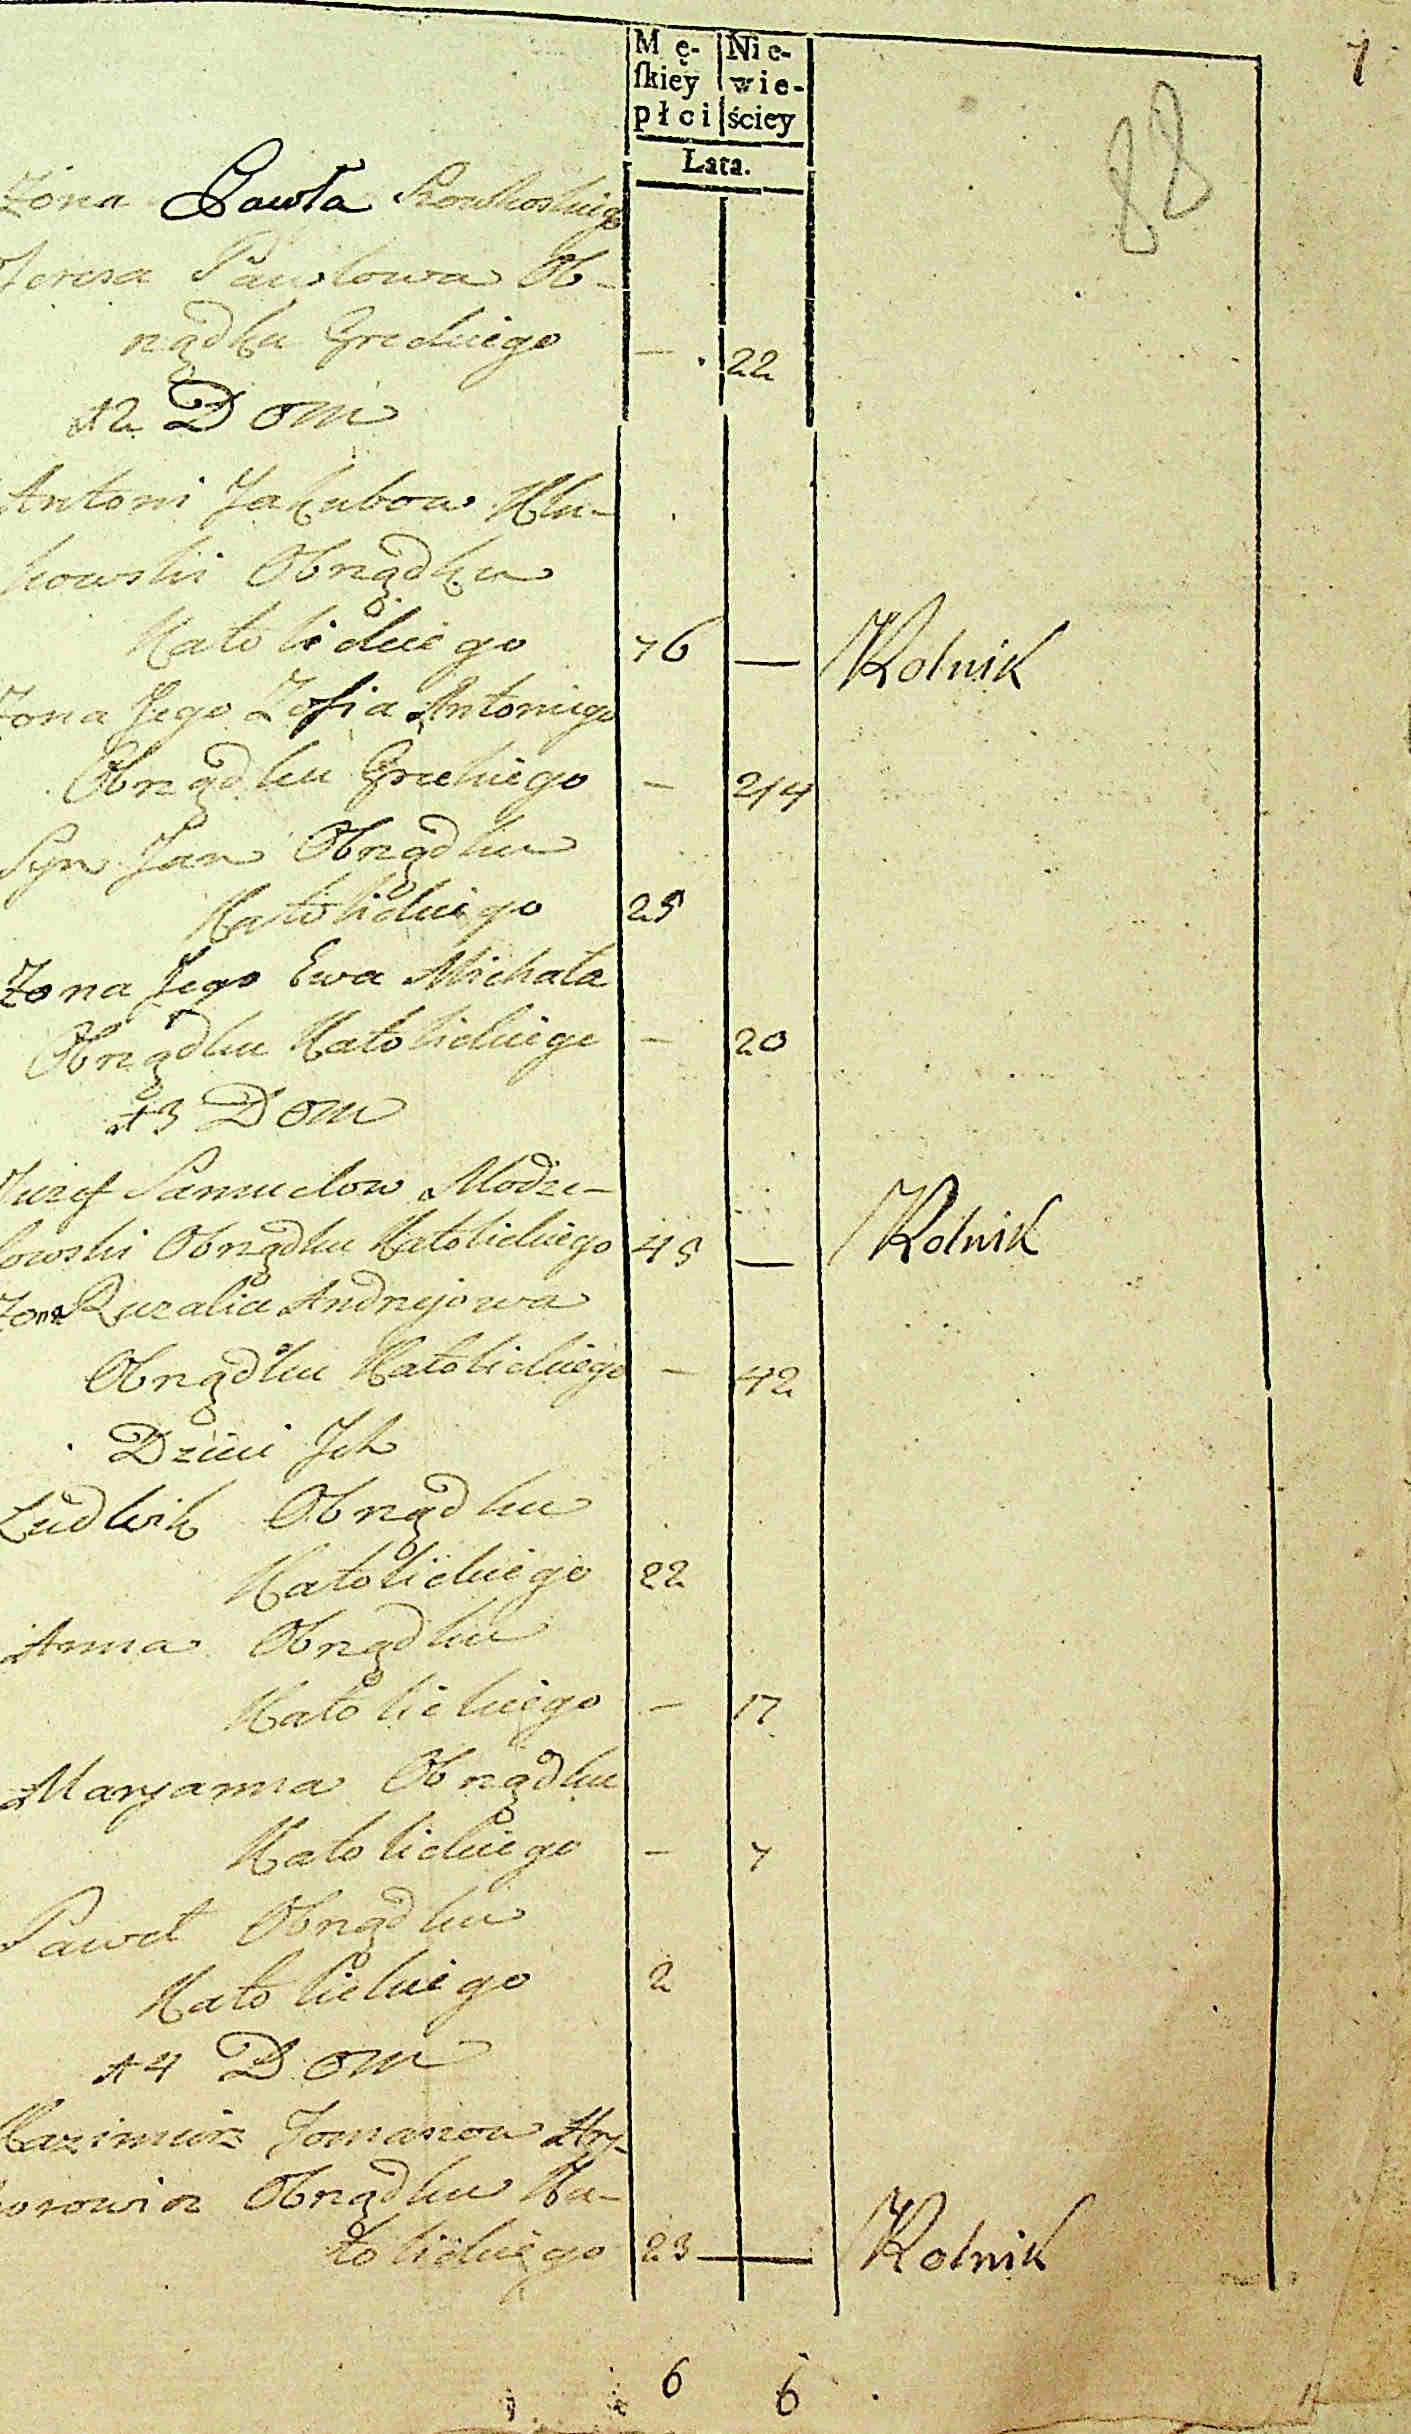 7
88
Mę- Nie-
ſkiey wie-
płci ściey
Lata.
Zona Pawła
Teresa Pawłowa Ob-
rządku Greckiego — 22
12 Dom
Antoni Jakubow Klu-
kowski Obrządku
Katolickiego 76 — Rolnik
Zona Jego Zofia Antoniego
Obrządku Greckiego —
Syn Jan Obrządku
Katolickiego 25
Zona Jego Ewa Michała
Obrządku Katolickiego — 20
13 Dom
Juzef Samuelow Modze-
lowski Obrządku Katolickiego 45 — Rolnik
Zona Ruzalia Andrzejowa
Obrządku Katolickiego — 42
Dzieci Ich
Ludwik Obrządku
Katolickiego 22
Anna Obrządku
Katolickiego — 17
Maryanna Obrządku
Katolickiego — 7
Paweł Obrządku
Katolickiego 2
14 Dom
Kazimierz Tomaszow Hry-
horowicz Obrządku Ka-
tolickiego 23 — Rolnik
6 6